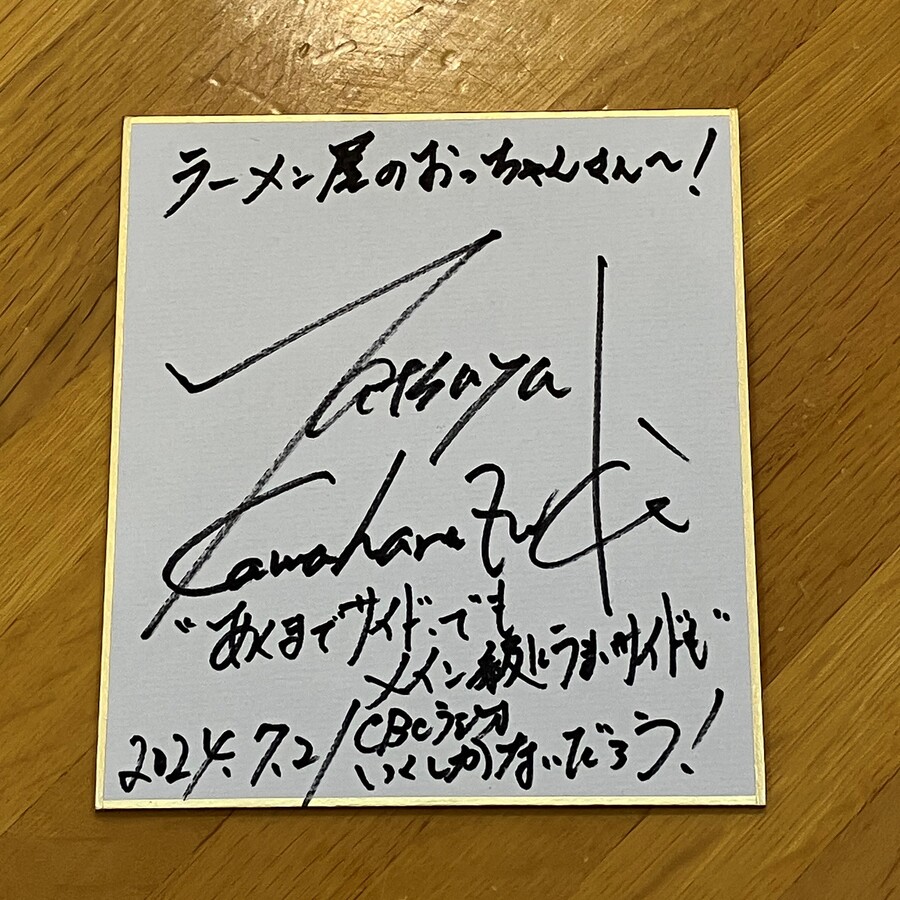 ラーメン屋のおっちゃんさん〜!
Tetsuya
Kawahara
"あくまでサイド、でも
メイン級にうまいサイドも"
2024.7.2/CBCラジオ
いくしかないだろう!